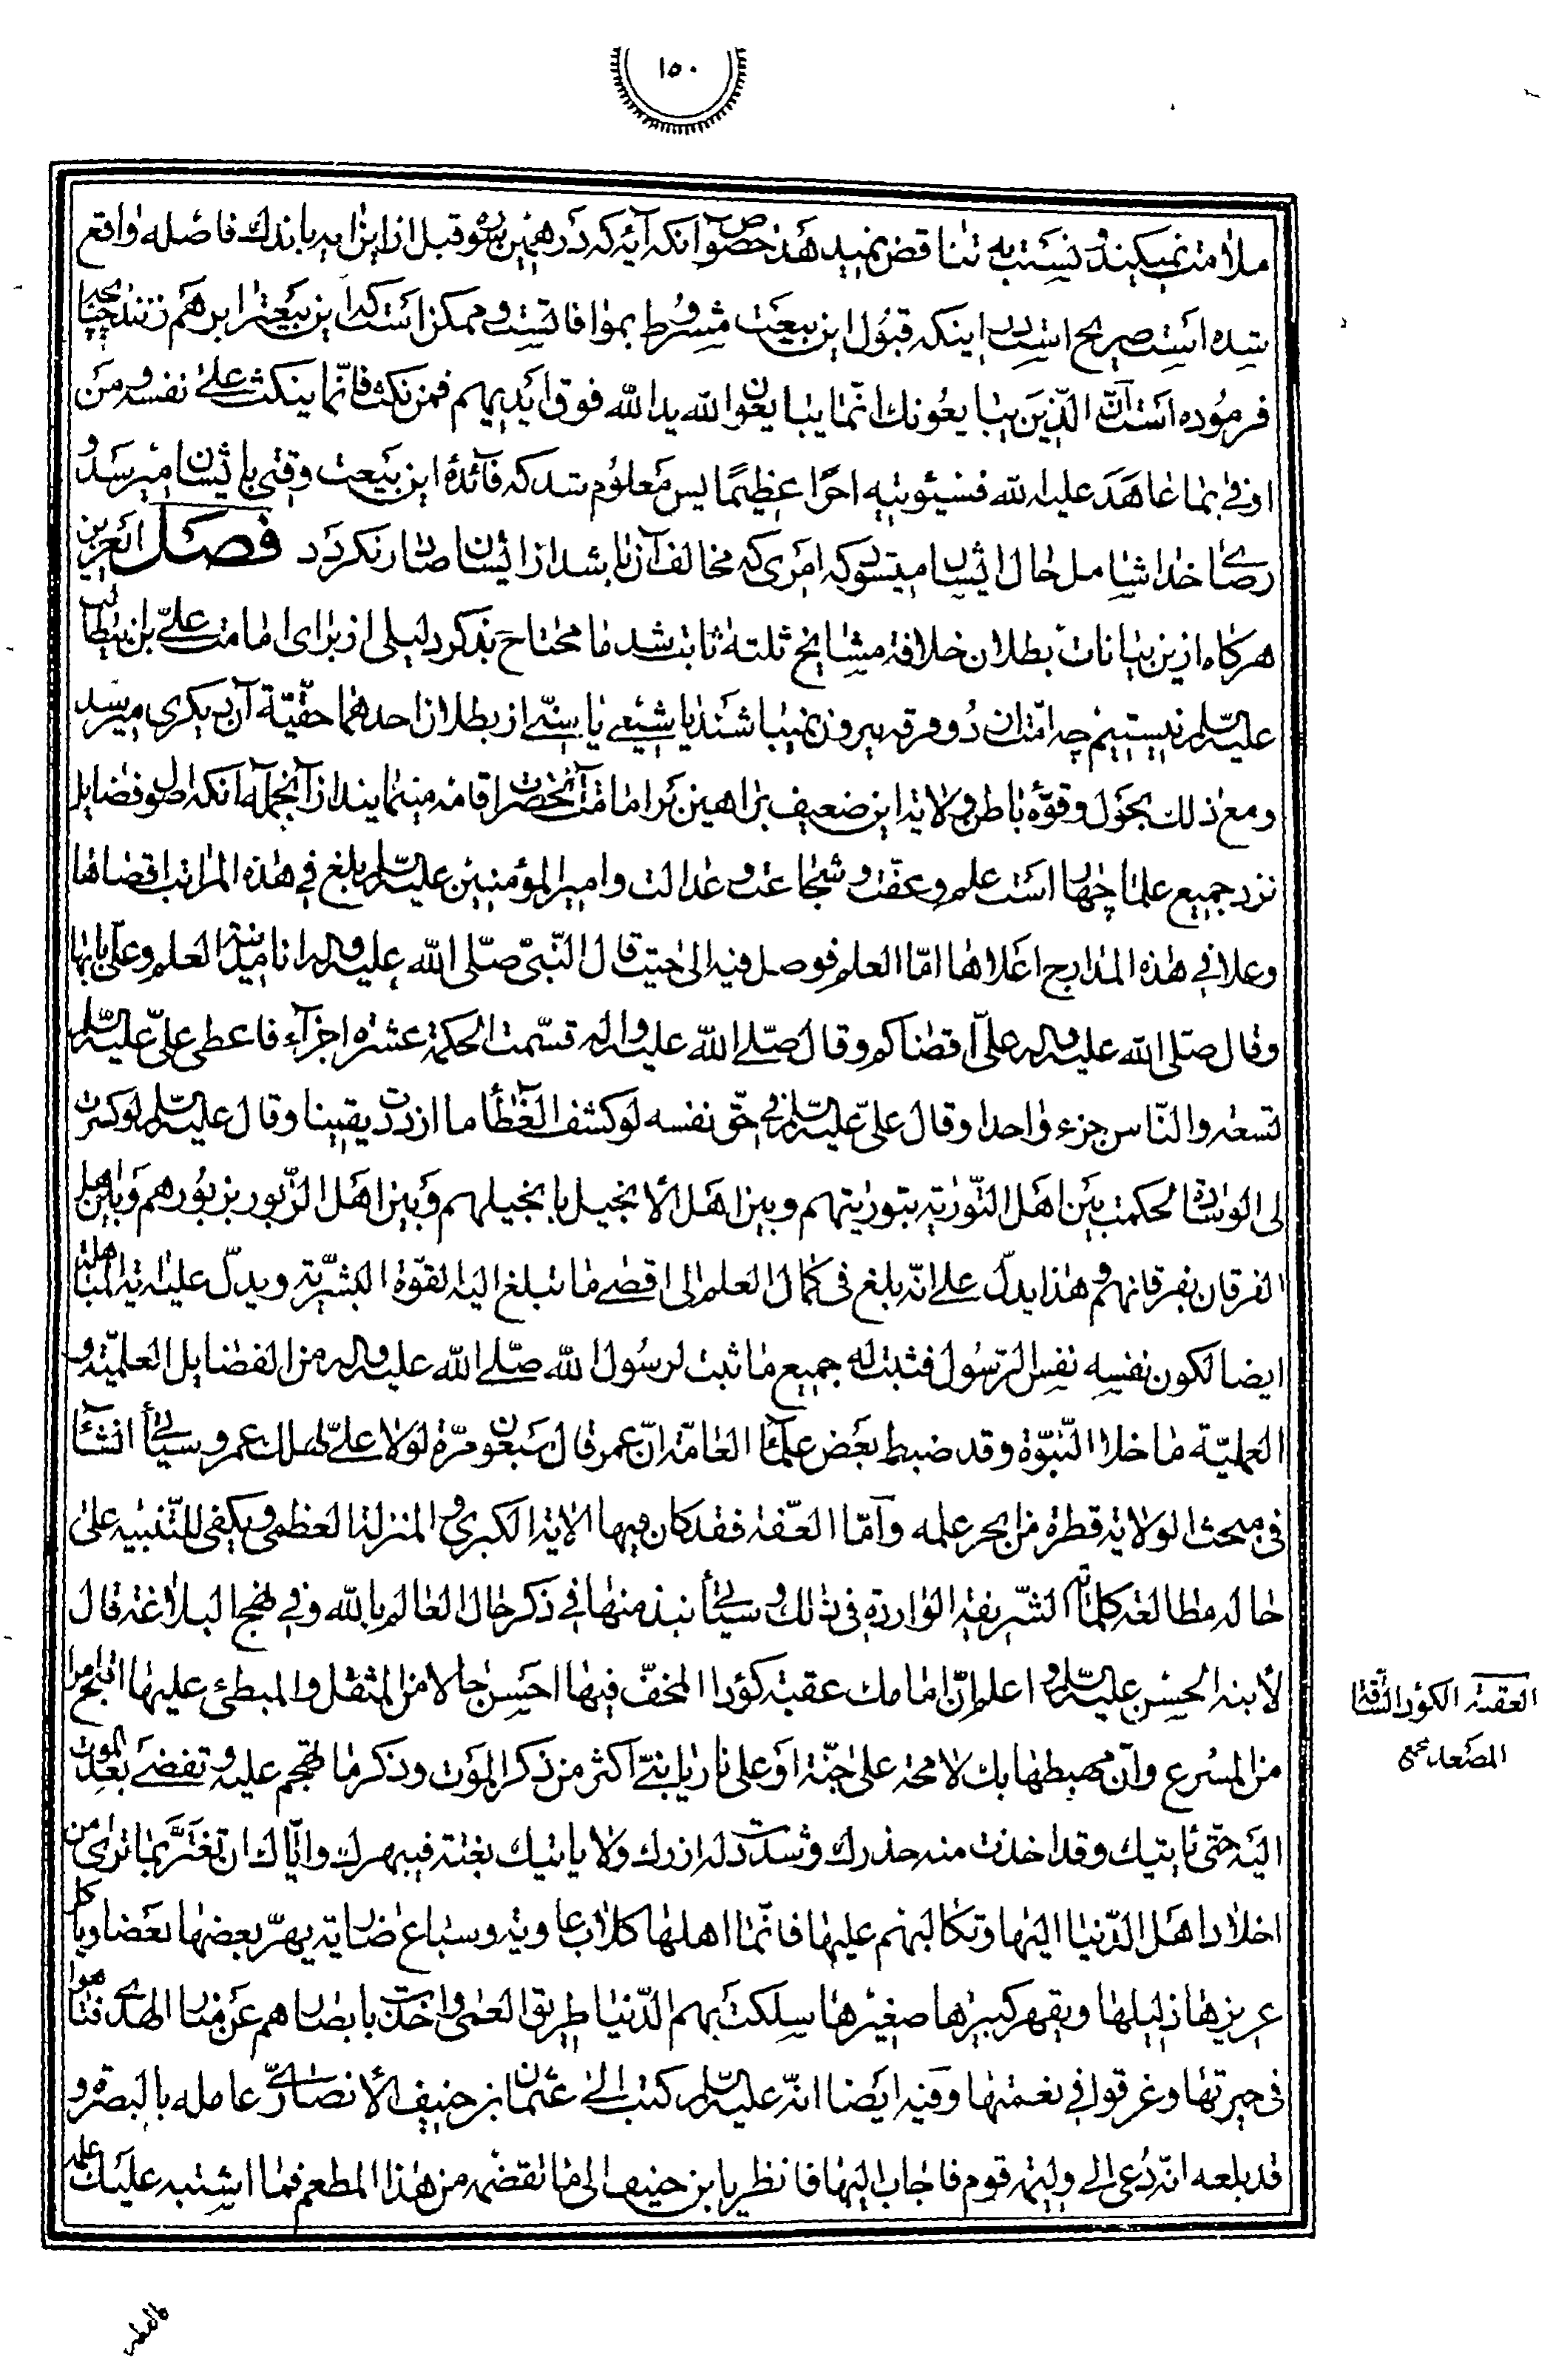 ١٥٠
ملامت نمیکنند و نسبت به تناقض نمیدهند خصوصا آنکه آیه که در همین سوره قبل از این آیه باندك فاصله واقع
شده است صریح است در اینکه قبول این بیعت مشروط بموافاتست و ممکن است که این بیعت را بر هم زنند چنانچه
فرموده است انّ الّذین یبایعونك انّما یبایعون الله ید الله فوق ایدیهم فمن نکث فانّما ینکث علی نفسه و من
اوفی بما عاهد علیه الله فسیؤتیه اجرًا عظیمًا پس معلوم شد که فائدۀ این بیعت وقتی بایشان میرسد و
رضای خدا شامل حال ایشان میشود که امری که مخالف آن باشد از ایشان صادر نکردد فصل ای عزیز من
هرکاه از این بیانات بطلان خلافة مشایخ ثلثة ثابت شد ما محتاج بذکر دلیلی از برای امامت علیّ بن ابیطالب
علیه السّلم نیستیم چه امّتان دو فرقه بیرون نمیباشند یا شیعی یا سنّی از بطلان احدهما حقّیّة آن دیکری میرسد
و مع ذلك بحول و قوّه باطن ولایة این ضعیف براهین بر امامت آنحضرت اقامه مینماید از آنجمله آنکه اصول فضایل
نزد جمیع علما چهار است علم و عفّت و شجاعت و عدالت و امیر المؤمنین علیه السّلم بلغ فی هذه المراتب اقصاها
و علا فی هذه المدارج اعلاها امّا العلم فوصل فیه الی حیث قال النّبیّ صلّی الله علیه و اله انا مدینة العلم و علیّ بابها
و قال صلّی الله علیه و اله علیّ اقضاکم و قال صلّی الله علیه و اله قسّمت الحکمة عشرة اجزآء فاعطی علیّ علیه السّلم
تسعة و النّاس جزء واحدا و قال علیّ علیه السّلم فی حقّ نفسه لو کشف الغطآء ما ازددت یقینا و قال علیه السّلم لو کسرت
لی الوسادة لحکمت بین اهل التّوریة بتوریتهم و بین اهل الانجیل بانجیلهم و بین اهل الزّبور بزبورهم و بین اهل
الفرقان بفرقانهم و هذا یدلّ علی انّه بلغ فی کمال العلم الی اقصی ما تبلغ الیه القوّة البشریّة و یدلّ علیه آیة المباهلة
ایضا لکون نفسه نفس الرّسول فثبت له جمیع ما ثبت لرسول الله صلّی الله علیه و اله من الفضایل العلمیّة و
العملیّة ما خلا النّبوّة و قد ضبط بعض علمآء العامّة انّ عمر قال سبعون مرّة لولا علیّ لهلك عمر و سیأتی انشآء الله
فی مبحث الولایة قطرة من ابحر علمه و امّا العفّة فقد کان فیها الایة الکبری و المنزلة العظمی و یکفی للتّنبیه علی
حاله مطالعة کلماته الشّریفة الواردة فی ذلك و سیأتی نبذ منها فی ذکر حال العالم بالله و فی نهج البلاغة قال
لأبنه الحسن علیه السّلم و اعلم انّ امامك عقبة کؤدا المخفّ فیها احسن حالا من المثقل و المبطئ علیها اقبح امرا
من المسرع و انّ مهبطها بك لا محة علی جنّة او علی نار یا بنیّ اکثر من ذکر الموت و ذکر ما تهجم علیه و تفضی بعد الموت
الیه حتّی یأتیك و قد اخذت منه حذرك و شددت له ازرك و لا یأتیك بغتة فیبهرك و ایّاك ان تغترّ بما تری من
اخلاد اهل الدّنیا الیها و تکالبهم علیها فانّما اهلها کلاب عاویة و سباع ضاریة یهرّ بعضها بعضا و یأکل
عزیزها ذلیلها و یقهر کبیرها صغیرها سلکت بهم الدّنیا طریق العمی و اخذت بابصارهم عن منار الهدی فتاهوا
فی حیرتها و غرقوا فی نعمتها و فیه ایضا انّه علیه السّلم کتب الی عثمان بن حنیف الأنصاریّ عامله بالبصرة و
قد بلغه انّه دعی الی ولیمة قوم فاجاب الیها فانظر یا بن حنیف الی ما تقضمه من هذا المطعم فما اشتبه علیك علمه
العقبة الکؤد الشّاقة
المصعد مجمع
فالفظه